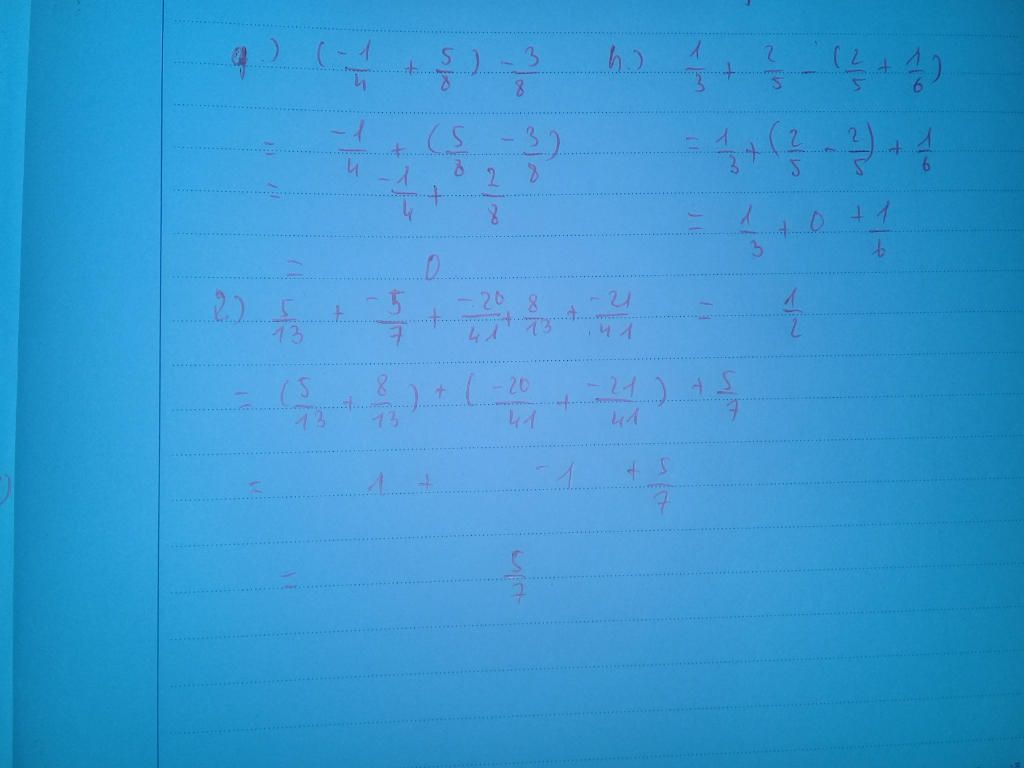 g.) (-1/4 + 5/8) - 3/8
= -1/4 + (5/8 - 3/8)
= -1/4 + 2/8
= 0
h.) 1/3 + 2/5 - (2/5 + 1/6)
= 1/3 + (2/5 - 2/5) + 1/6
= 1/3 + 0 + 1/6
= 1/2
2.) 5/13 + -5/7 + -20/41 + 8/13 + -21/41
= (5/13 + 8/13) + (-20/41 + -21/41) + 5/7
= 1 + -1 + 5/7
= 5/7